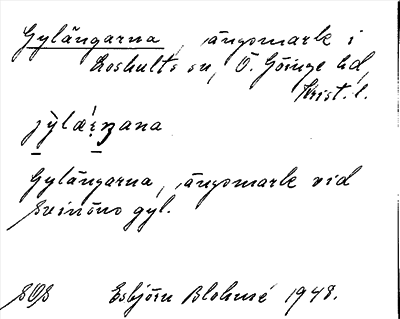 Gylängarna, ängsmark i
Loshults sn, Ö. Göinge hd,
Krist. l.
Gylängarna, ängsmark vid
Svinöns gyl.
SOS Esbjörn Blohmé 1948.